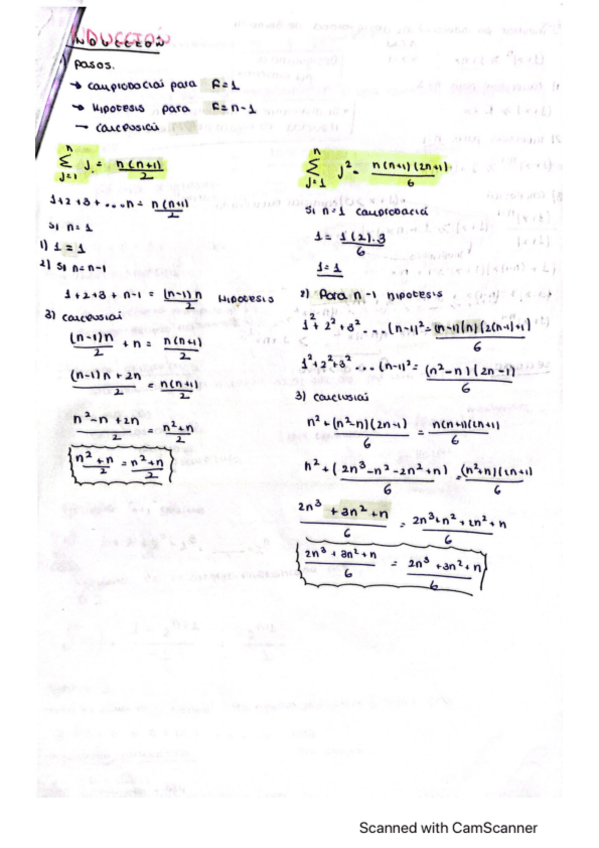 INDUCCION
) PASOS.
→ comprobación para R=1
→ Hipotesis para R=n-1
→ conclusión
n
∑ j = n(n+1)/2
j=1
1+2+3+...n = n(n+1)/2
Si n=1
1) 1=1
2) Si n=n-1
1+2+3+n-1 = (n-1)n/2 Hipotesis
3) conclusión
(n-1)n/2 + n = n(n+1)/2
(n-1)n+2n/2 = n(n+1)/2
n²-n+2n/2 = n²+n/2
n²+n/2 = n²+n/2
n
∑ j² = n(n+1)(2n+1)/6
j=1
Si n=1 comprobación
1 = 1(2).3/6
1=1
2) Para n-1 hipotesis
1²+2²+3²...(n-1)² = (n-1)(n)(2(n-1)+1)/6
1²+2²+3²...(n-1)² = (n²-n)(2n-1)/6
3) conclusión
n²+(n²-n)(2n-1)/6 = n(n+1)(2n+1)/6
n²+(2n³-n²-2n²+n)/6 = (n²+n)(2n+1)/6
2n³+3n²+n/6 = 2n³+n²+2n²+n/6
2n³+3n²+n/6 = 2n³+3n²+n/6
Scanned with CamScanner